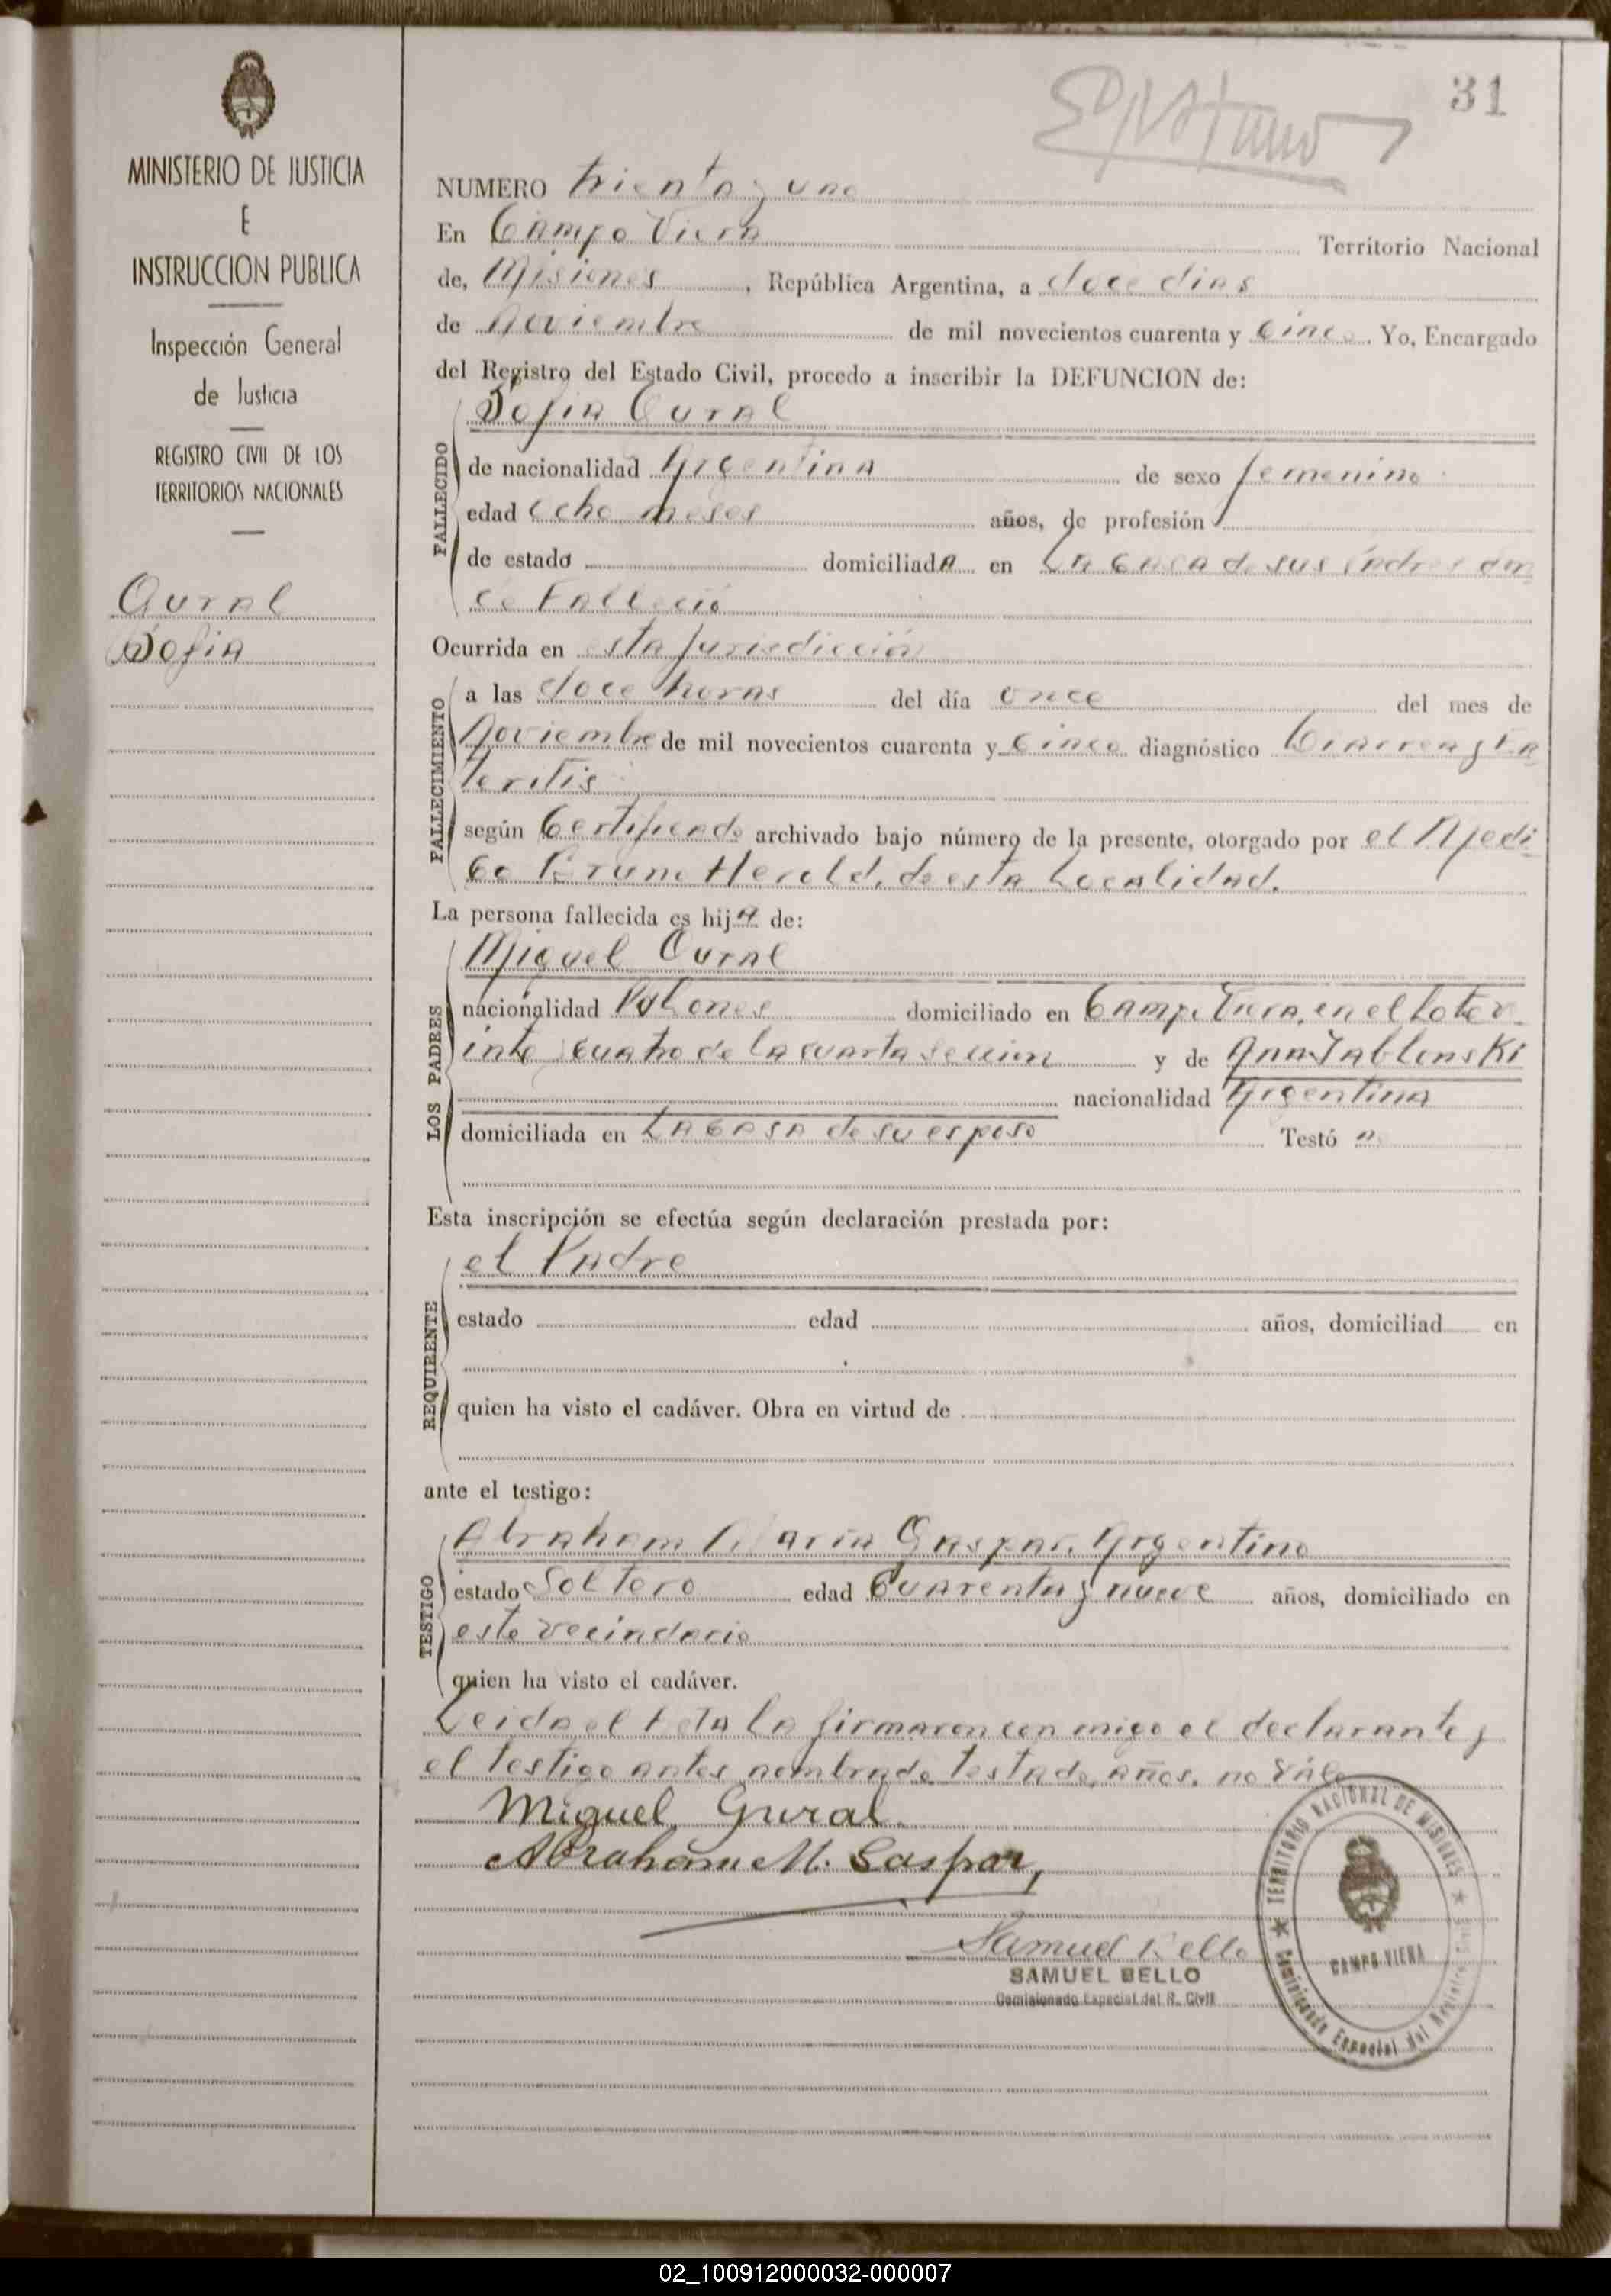 31
MINISTERIO DE JUSTICIA
E
INSTRUCCION PUBLICA
Inspección General
de Justicia
REGISTRO CIVIL DE LOS
TERRITORIOS NACIONALES
Gural
Sofia
NUMERO treinta y uno
En Campo Viera Territorio Nacional
de, Misiones, República Argentina, a doce dias
de Noviembre de mil novecientos cuarenta y Cinco. Yo, Encargado
del Registro del Estado Civil, procedo a inscribir la DEFUNCION de:
FALLECIDO
Sofia Gural
de nacionalidad Argentina de sexo femenino
edad Ocho meses años, de profesión
de estado domiciliada en La Casa de sus Padres don
ce Falleció
Ocurrida en esta Jurisdicción
FALLECIMIENTO
a las doce horas del día once del mes de
Noviembre de mil novecientos cuarenta y Cinco diagnóstico
teritis
según Certificado archivado bajo número de la presente, otorgado por el Medi
Co Bruno Herold, de esta Localidad.
La persona fallecida es hija de:
LOS PADRES
Miguel Gural
nacionalidad Polones domiciliado en Campo Viera, en el Lote v
inte cuatro de la cuarta Seccion y de Ana Jablonski
nacionalidad Argentina
domiciliada en La Casa de su esposo Testó
Esta inscripción se efectúa según declaración prestada por:
REQUIRENTE
el Padre
estado edad años, domiciliad en
quien ha visto el cadáver. Obra en virtud de
ante el testigo:
TESTIGO
Abraham Maria Gaspar, Argentino
estado Soltero edad Cuarenta y nueve años, domiciliado en
este vecindario
quien ha visto el cadáver.
Leida el Acta la firmaron con migo el declarante y
el testigo antes nombrado testado, años, no Vále
Miguel Gural.
Abraham M. Gaspar,
Samuel Bello
SAMUEL BELLO
Comisionado Especial del R. Civil
TERRITORIO NACIONAL DE MISIONES
CAMPO VIERA
Comisionado Especial del Registro Civil
02_100912000032-000007